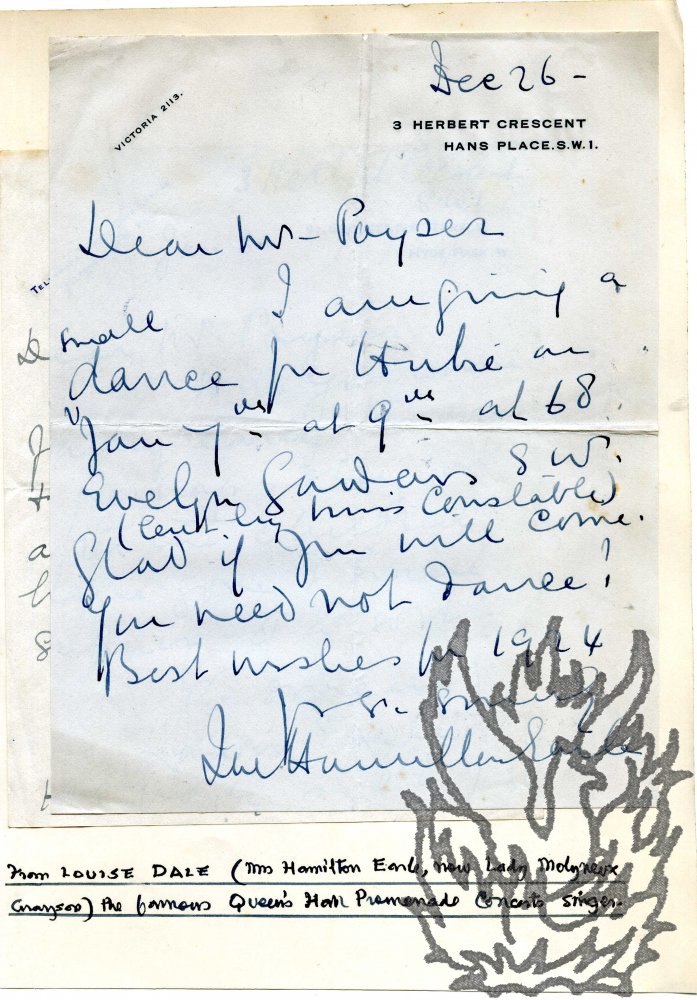 Dec 26 -
VICTORIA 2113.
3 HERBERT CRESCENT
HANS PLACE. S.W.1.
Dear Mr - Payser
I am giving a
small
dance for Hubie on
Jan 7th at 9th at 68
Evelyn Gardens S W.
(lent by Miss Constable)
Glad if you will come.
You need not dance!
Best wishes for 1924
Yrs. sincely
Hamilton Earle
TEL
From LOUISE DALE (Mrs Hamilton Earle, now Lady Molyneux
Grayson) the famous Queen's Hall Promenade Concerts singer.